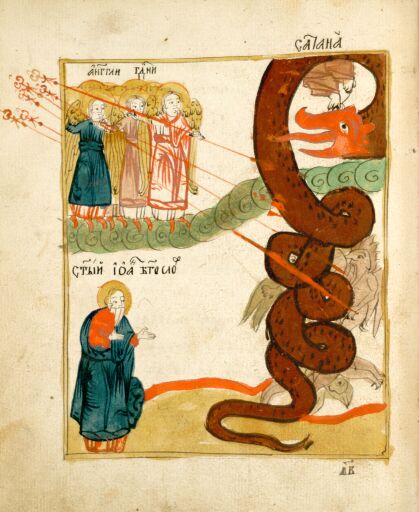 САТАНА̀
а҆́нг҃гли гд҃ни
ст҃ый іѡ҃а бг҃ослоⷡ